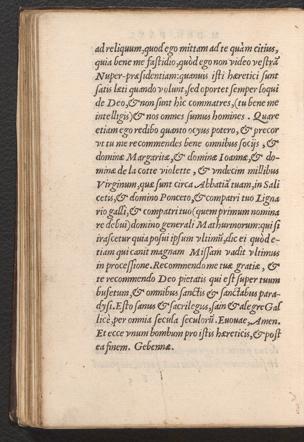 ad reliquum, quod ego mittam ad te quàm citius,
quia bene me fastidio, quòd ego non video vestrã
Nuper-præsidentiam: quamuis isti hæretici sunt
satis læti quando volunt, sed oportet semper loqui
de Deo, & non sunt hîc commatres, (tu bene me
intelligis) & nos omnes sumus homines. Quare
etiam ego redibo quanto ocyus potero, & precor
vt tu me recommendes bene omnibus socijs, &
dominæ Margaritæ, & dominæ Ioannæ, & do-
minæ de la cotte violette, & vndecim millibus
Virginum, quæ sunt circa Abbatiã tuam, in Sali
cetis, & domino Ponceto, & compatri tuo Ligna
rio galli, & compatri tuo (quem primum nomina
re debui) domino generali Mathurinorum: qui si
irascetur quia posui ipsum vltimũ, dic ei quòd e-
tiam qui canit magnam Missam vadit vltimus
in processione. Recommendo me tuæ gratiæ, &
te recommendo Deo pietatis qui est super tuum
busetum, & omnibus sanctis & sanctabus para-
dysi. Esto sanus & sacrilegus, sain & alegre Gal
licè, per omnia secula seculorũ. Euouae, Amen.
Et ecce vnum bombum pro istis hæreticis, & post
ea finem. Gebennæ.